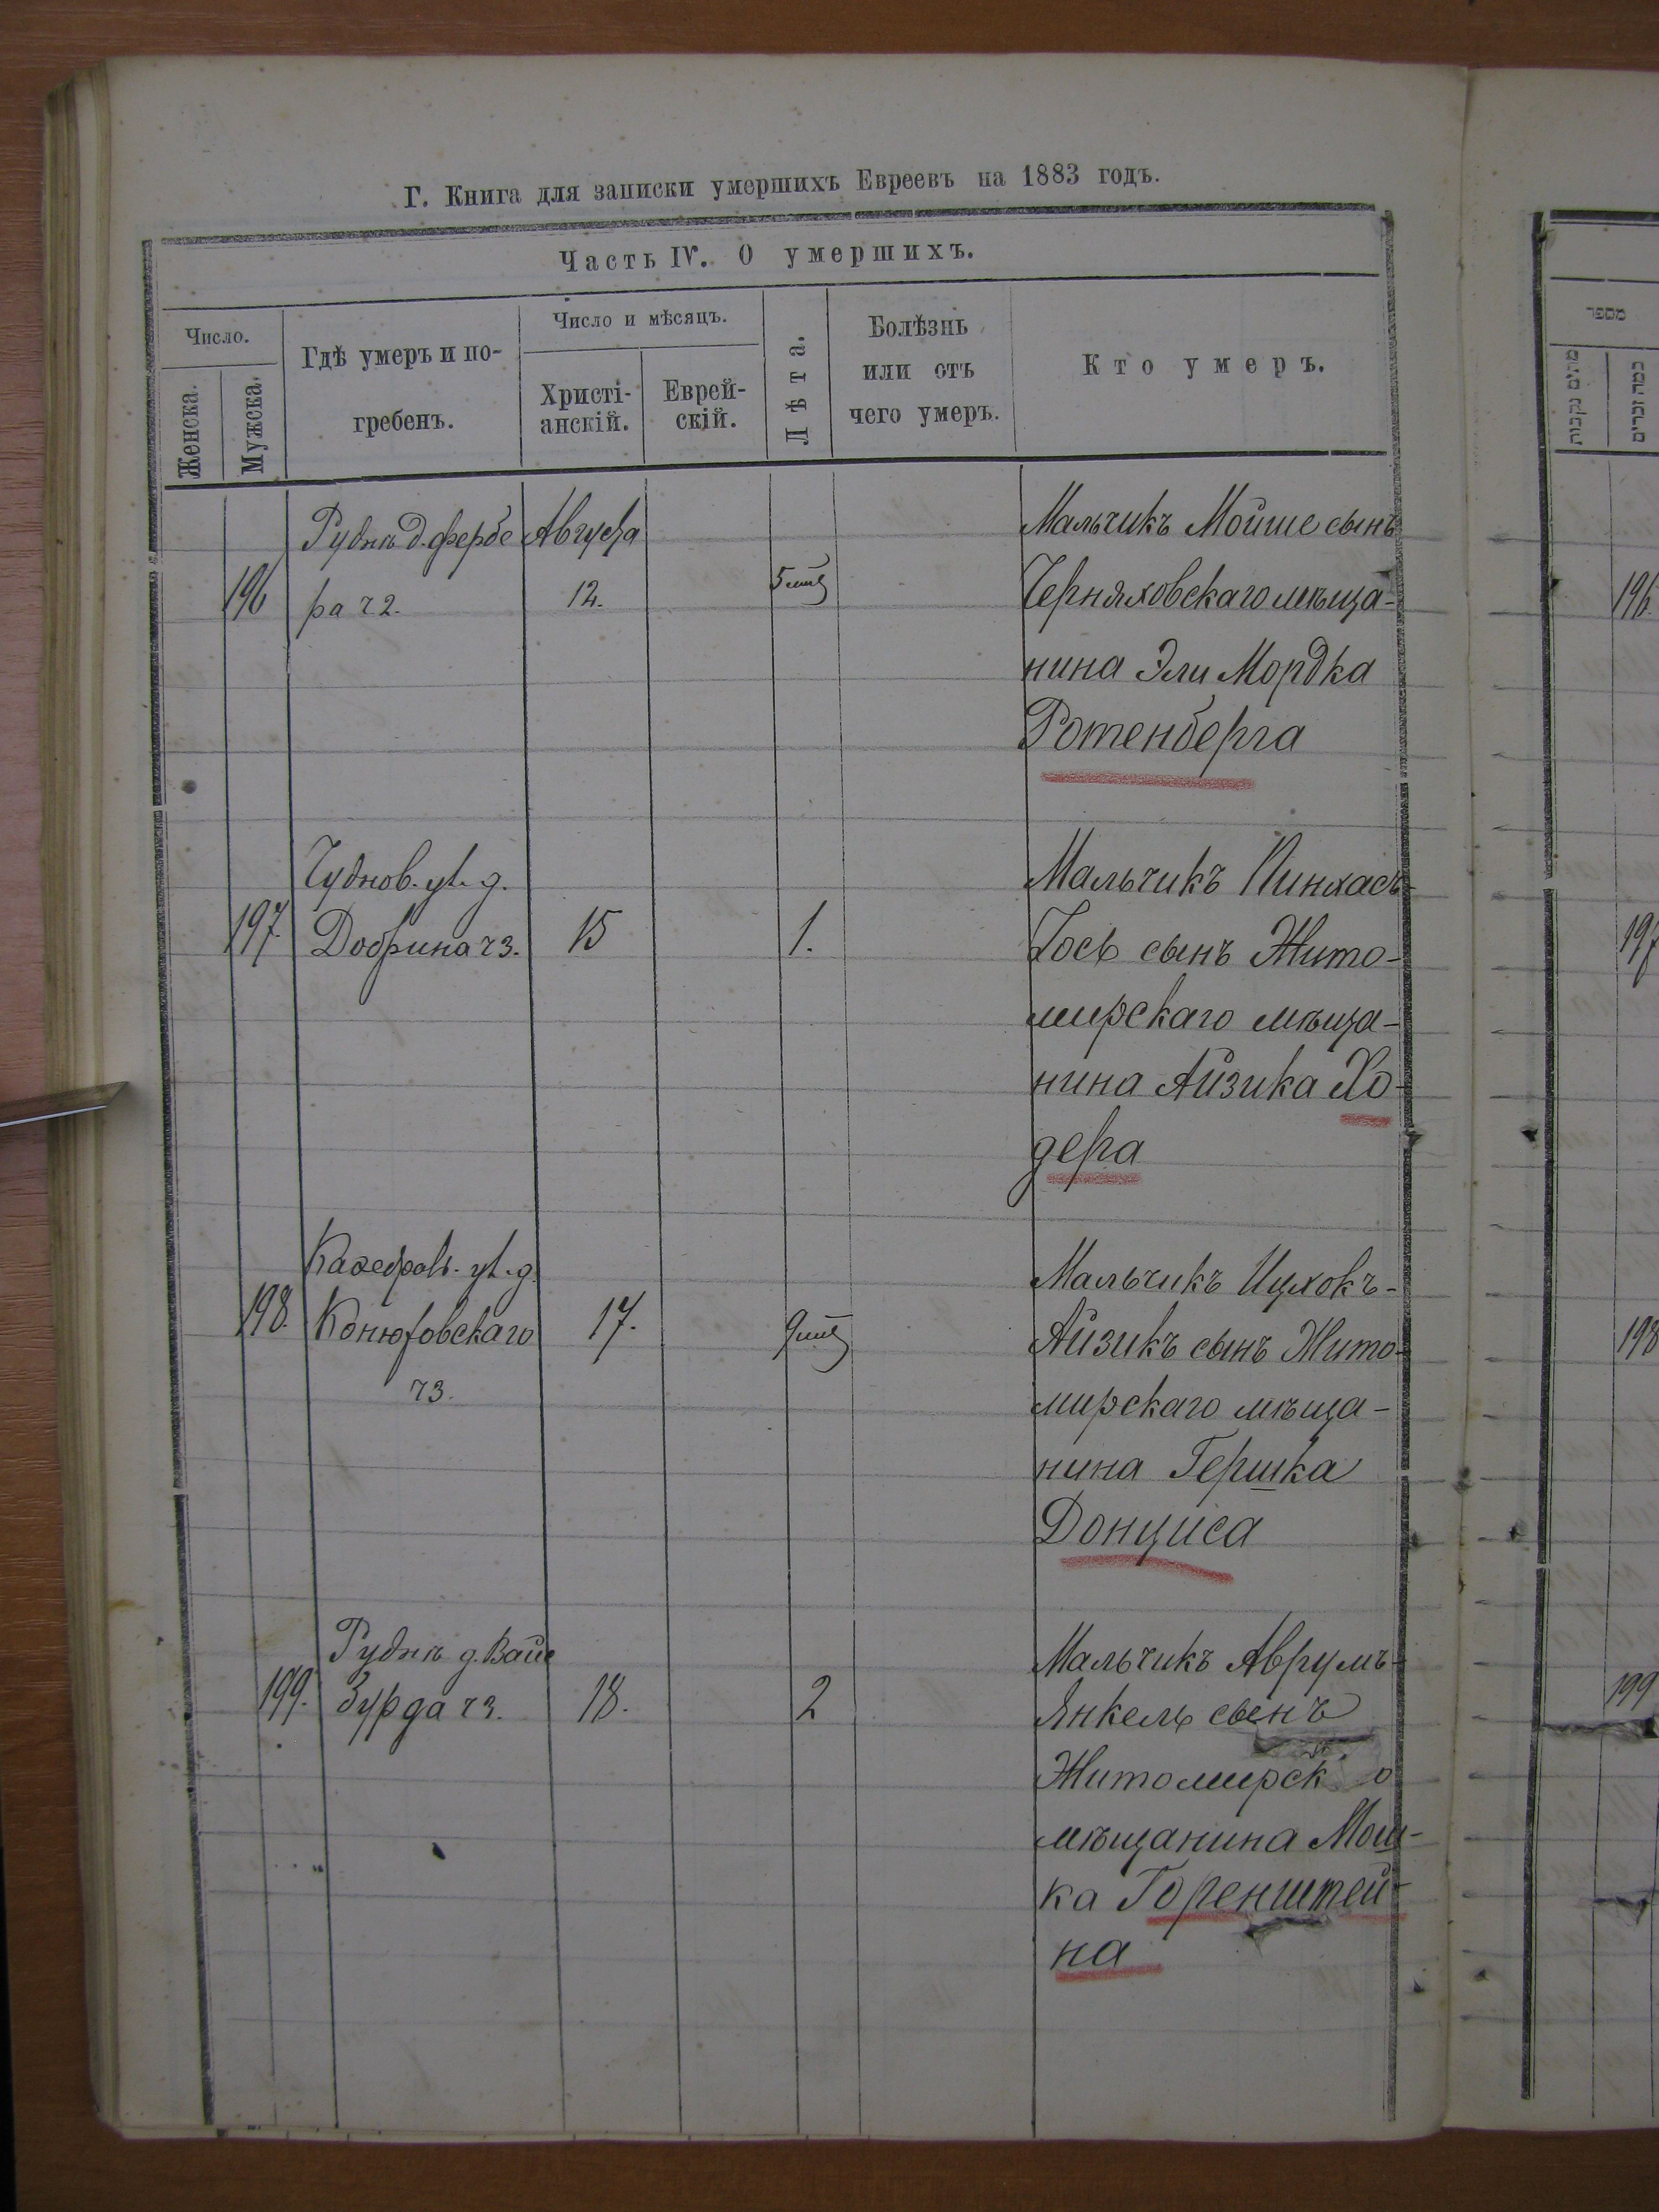 Г. Книга для записки умершихъ Евреевъ на 1883 годъ.
Часть IV. О умершихъ.
Число.
Женска.
Мужска.
Гдѣ умеръ и по-
гребенъ.
Число и мѣсяцъ.
Христі-
анскій.
Еврей-
скій.
Лѣта.
Болѣзнь
или отъ
чего умеръ.
Кто умеръ.
מספר
כמה זכרים
196
Рудня д. Фербе
ра ч 2.
Августа
12.
5 мц
Мальчикъ Мойше сынъ
Черняховскаго мѣща-
нина Эли Мордка
Ротенберга
196.
197.
Чуднов. ул. д.
Добрина ч 3.
15
1.
Мальчикъ Пинхасъ-
Іось сынъ Жито-
мирскаго мѣща-
нина Айзика Хо-
дера
197
198.
Каѳедраль. ул. д.
Конюховскаго
ч 3.
17.
9 мц
Мальчикъ Ицхокъ-
Айзикъ сынъ Жито-
мирскаго мѣща-
нина Гершка
Донциса
198
199.
Рудня д. Вайс
бурда ч 3.
18.
2
Мальчикъ Аврумъ-
Янкель сынъ
Житомирск о
мѣщанина Мош-
ка Горенштей-
на
199